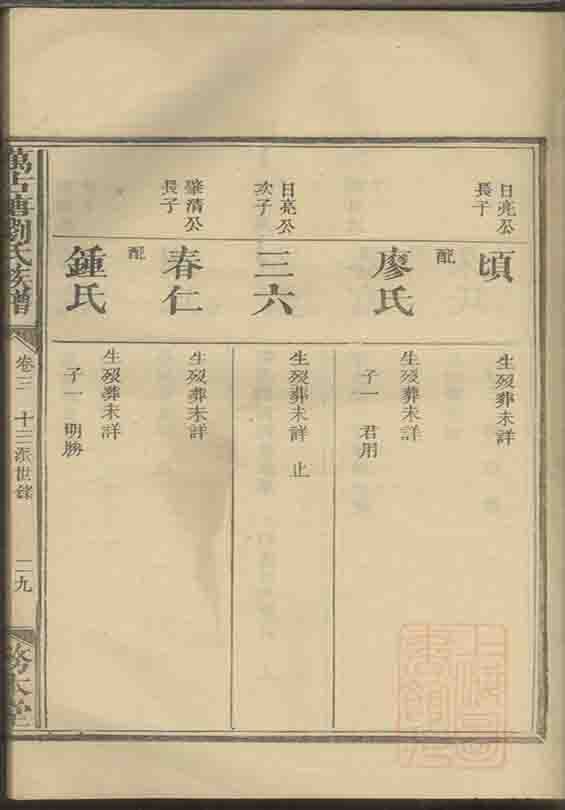 日亮公
長子
頃
生歿葬未詳
配
廖氏
生歿葬未詳
子一 君用
日亮公
次子
三六
生歿葬未詳 止
肇清公
長子
春仁
生歿葬未詳
配
鍾氏
生歿葬未詳
子一 明勝
劉氏族譜
卷三 十三派世錄
二九
務本堂